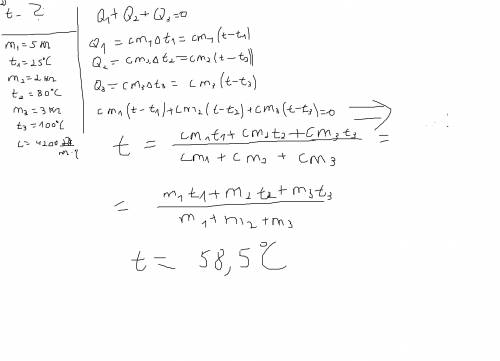 t - ?
m₁ = 5 л
t₁ = 25°C
m₂ = 2 кг
t₂ = 80°C
m₃ = 3 кг
t₃ = 100°C
c = 4200
Q₁ + Q₂ + Q₃ = 0
Q₁ = cm₁Δt₁ = cm₁(t-t₁)
Q₂ = cm₂Δt₂ = cm₂(t-t₂)
Q₃ = cm₃Δt₃ = cm₃(t-t₃)
cm₁(t-t₁) + cm₂(t-t₂) + cm₃(t-t₃) = 0 ⇒
t = (cm₁t₁ + cm₂t₂ + cm₃t₃) / (cm₁ + cm₂ + cm₃) =
= (m₁t₁ + m₂t₂ + m₃t₃) / (m₁ + m₂ + m₃)
t = 58,5°C